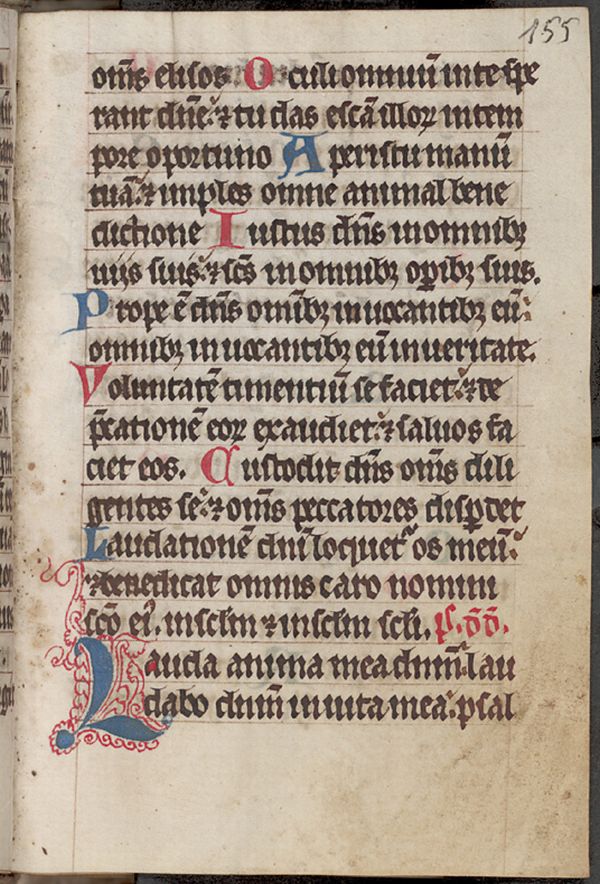 155
om̄s elisos. Oculi omniū in te spe
rant dn̄e: ⁊ tu das escā illoꝝ in tem
pore oportuno Aperis tu manū
tuā: ⁊ imples omne animal bene
dictione Iustus dn̄s in omnibꝫ
uijs suis: ⁊ sc̄s in omnibꝫ oꝑibꝫ suis.
Prope ē dn̄s omībꝫ inuocantibꝫ eū:
omnibꝫ inuocantibꝫ eū in ueritate.
Voluntatē timentiū se faciet: ⁊ de
p̄cationē eoꝝ exaudiet: ⁊ saluos fa
ciet eos. Custodit dn̄s om̄s dili
gentes se: ⁊ om̄s peccatores disꝑdet
Laudationē dn̄i loquet᷑ os meū:
⁊ benedicat omnis caro nomini
sc̄o ei᷒. in sc̄lm ⁊ in sc̄lm sc̄li. p̄s. dd̄.
Lauda anima mea dn̄m: lau
dabo dn̄m in uita mea: psal